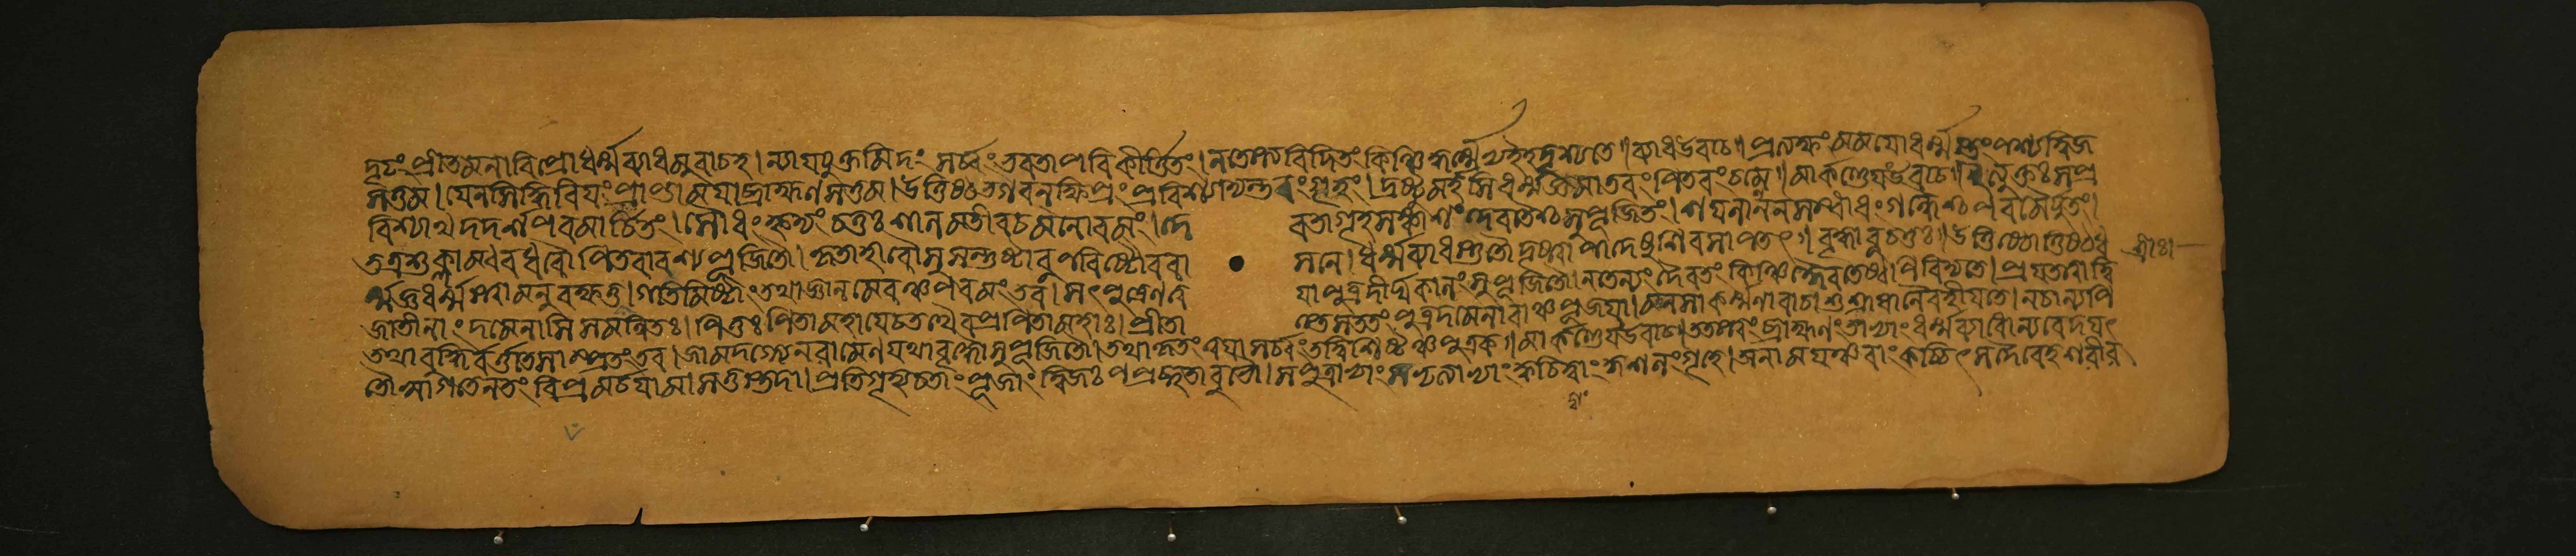 দৃঢং প্রীতমনা বিপ্রো ধর্ম্মব্যাধমুবাচ হ। ন্যাযযুক্তমিদং সর্ব্বং ভবতা পরিকীর্ত্তিতং। ন তেস্ত্যবিদিতং কিঞ্চিদ্ধর্ম্মেষ্বিহ হি দৃশ্যতে॥ ব্যাধ উবাচ॥ প্রত্যক্ষং মম যো ধর্ম্মস্তং পশ্য দ্বিজ
সত্তম। যেন সিদ্ধিরিযং প্রাপ্তা মযা ব্রাহ্মণসত্তম। উত্তিষ্ঠ ভগবন্ ক্ষিপ্রং প্রবিশ্যাভ্যন্তরং গৃহং। দ্রষ্টুমর্হসি ধর্ম্মজ্ঞ মাতরং পিতরং চ মে॥ মার্কণ্ডেয উবাচ॥ ইত্যুক্তঃ স প্র
বিশ্যাথ দদর্শ পরমার্চিতং। সৌধং হৃদ্যং চতুঃশালমতীব চ মনোরমং। দেবতাগৃহসঙ্কাশং দেবতৈশ্চ সুপূজিতং। শযনাসনসম্বাধং গন্ধৈশ্চ পরমৈর্যুতং।
তত্র শুক্লাম্বরধরৌ পিতরাবস্য পূজিতৌ। কৃতাহারৌ সুসন্তুষ্টাবুপবিষ্টৌ বরাসনে। ধর্ম্মব্যাধস্তু তৌ দৃষ্ট্বা পাদেষু শিরসাপতৎ। বৃদ্ধাবুচতুঃ॥ উত্তিষ্ঠোত্তিষ্ঠ ধ
র্ম্মজ্ঞ ধর্ম্মস্ত্বামনুরক্ষতু। গতিমিষ্টাং তথা জ্ঞানমেবঞ্চ পরমং তব। সৎপুত্রেণ ত্বযা পুত্র দীর্ঘকালং সুপূজিতৌ। ন তেন্যং দৈবতং কিঞ্চিদ্দৈবতেষ্বপি বিদ্যতে। প্রযতত্বাদ্দ্বি
জাতীনাং দমেনাসি সমন্বিতঃ। পিতুঃ পিতামহা যে চ তথৈব প্রপিতামহাঃ। প্রীতাস্তে সততং পুত্র দমেনাবাঞ্চ পূজযা। মনসা কর্ম্মণা বাচা শুশ্রূষা নৈব হীযতে। ন চান্যাপি
তথা বুদ্ধির্বর্ত্ততে সাম্প্রতং তব। জামদগ্ন্যেন রামেণ যথা বৃদ্ধৌ সুপূজিতৌ। তথা কৃতং ত্বযা সর্ব্বং তদ্বিশিষ্টঞ্চ পুত্রক। মার্কণ্ডেয উবাচ। ততস্তং ব্রাহ্মণং তাভ্যাং ধর্ম্মব্যাধোন্যবেদযৎ
তৌ স্বাগতেন তং বিপ্রমর্চযামাসতুস্তদা। প্রতিগৃহ্য চ তাং পূজাং দ্বিজঃ পপ্রচ্ছ তাবুভৌ। সপুত্রাভ্যাং সভৃত্যাভ্যাং কচ্চিদ্বাং কুশলং গৃহে। অনামযঞ্চ বাং কচ্চিৎ সদৈবেহ শরীর